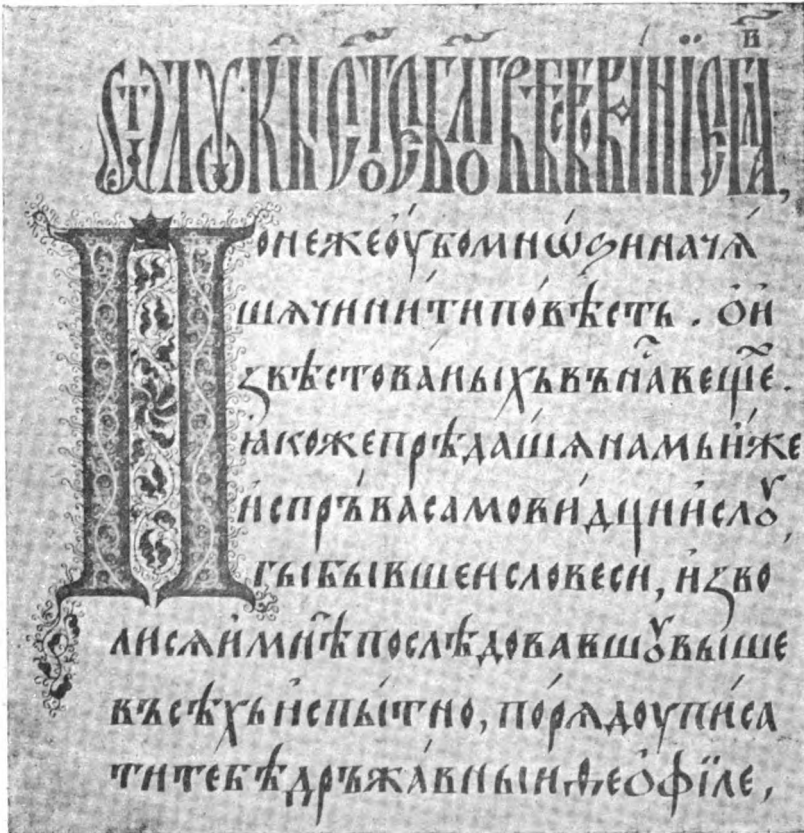 Ѿ лꙋкы ст҃ое бл҃говѣствованїе гл҃а,
Понежеоу҆бомнѡѕиначѧ
шѧчини́типовѣсть . ѻ҆и
ꙁвѣстова́ныхъвън҄авеще҄ .
ꙗ҆кожепрѣда́шѧнамъи҆́же
и҆спръ́васамови́дции҆слꙋ
гыбывшеисловеси, иꙁво
лисѧи҆мн҄ѣпослѣдовавшꙋвыше
въсѣхъи҆спы́тно, порѧдоупи́са
титебѣдръжа́вныиѳеѻ҆фїле,